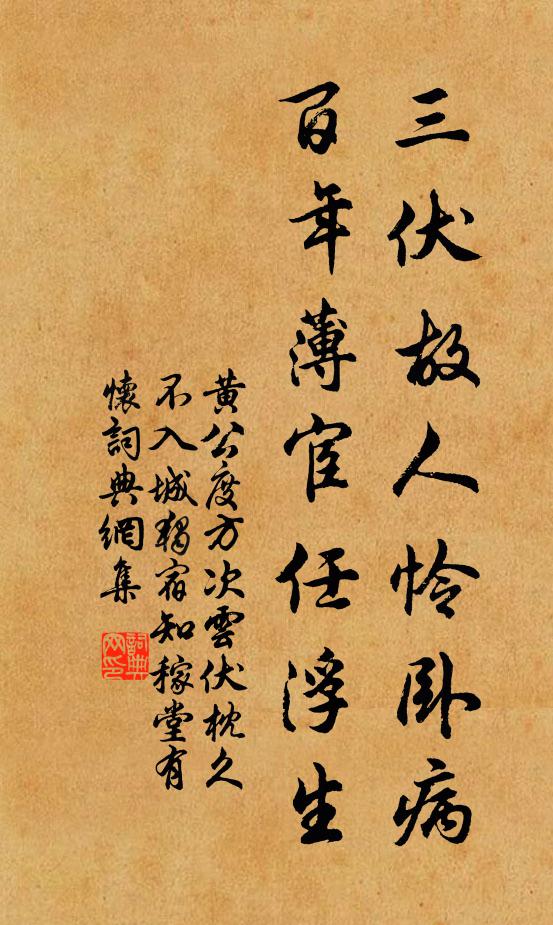 三伏故人怜卧病
百年薄宦任浮生
黄公度方次雲伏枕久
不入城獨宿知稼堂有
懷詞典網集
詞典網印